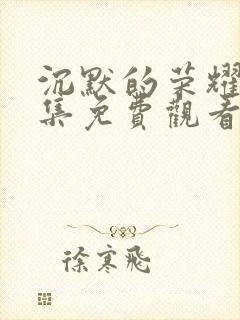 沉默的荣耀
集免費觀看
徐寒飛